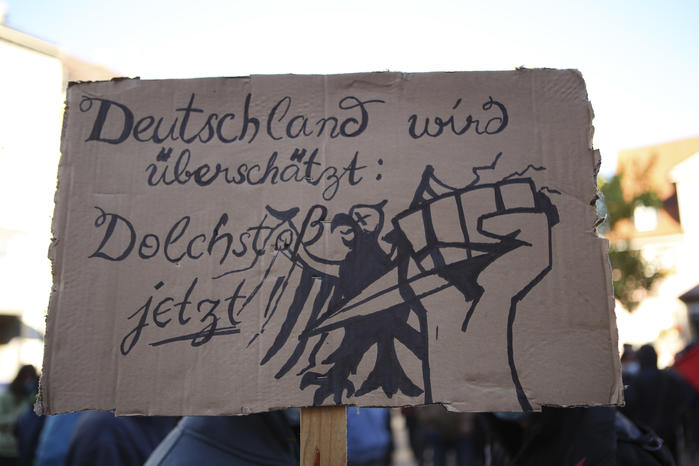 Deutschland wird
überschätzt:
Dolchstoß
jetzt!